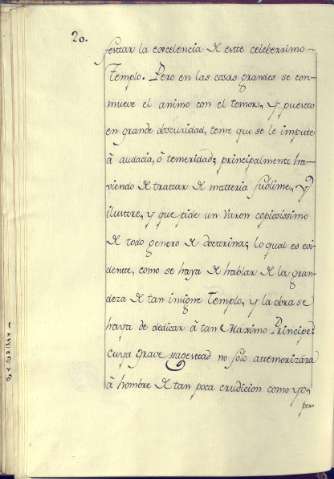 20.
evitar la excelencia de este celeberrimo
Templo. Pero en las cosas grandes se con-
mueve el animo con el temor, y puesto
en grande obscuridad, teme que se le impute
â audacia, ô temeridad; principalmente ha-
viendo de tratar de matteria sublime, y
ilustre, y que pide un Varon copiosissimo
de todo genero de doctrina; lo qual es evi-
dente, como se haya de hablar de la gran-
deza de tan insigne Templo, y la obra se
haya de dedicar â tan Maximo Principe,
cuya grave magestad no solo attemorizára
â hombre de tan poca erudicion como yo,
pe-